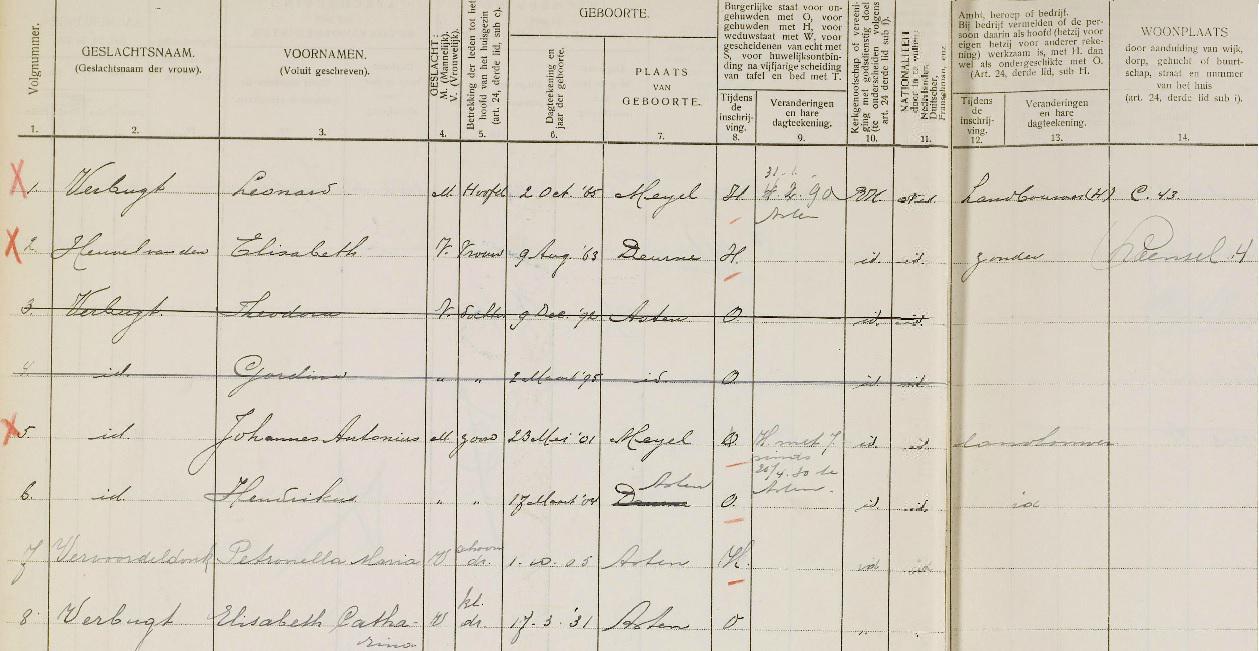 Volgnummer.
GESLACHTSNAAM.
(Geslachtsnaam der vrouw).
VOORNAMEN.
(Voluit geschreven).
GESLACHT:
M. (Mannelijk).
V. (Vrouwelijk).
Betrekking der leden tot het
hoofd van het huisgezin
(art. 24, derde lid, sub c).
GEBOORTE.
Dagteekening en
jaar der geboorte.
PLAATS
VAN
GEBOORTE.
Burgerlijke staat voor on-
gehuwden met O, voor
gehuwden met H, voor
weduwstaat met W, voor
gescheidenen van echt met
S, voor huwelijksontbin-
ding na vijfjarige scheiding
van tafel en bed met T.
Tijdens
de
inschrij-
ving.
Veranderingen
en hare
dagteekening.
Kerkgenootschap of vereeni-
ging met godsdienstig doel
(te onderscheiden volgens
art. 24 derde lid sub f).
NATIONALITEIT
Nederlander,
Duitscher,
Franschman, enz.
Ambt, beroep of bedrijf.
Bij bedrijf vermelden of de per-
soon daarin als hoofd (hetzij voor
eigen hetzij voor anderer reke-
ning) werkzaam is, met H. dan
wel als ondergeschikte met O.
(Art. 24, derde lid, sub H.
Tijdens
de
inschrij-
ving.
Veranderingen
en hare
dagteekening.
WOONPLAATS
door aanduiding van wijk,
dorp, gehucht of buurt-
schap, straat en nummer
van het huis
(art. 24, derde lid sub i).
1. 2. 3. 4. 5. 6. 7. 8. 9. 10. 11. 12. 13. 14.
X 1. Verbugt Leonard M. Hoofd 2 Oct. '65 Meyel H. 31. 1. 90 Asten RK. Ned. Landbouwer (H) C. 43
X 2 Heuvel van den Elisabeth V. Vrouw 9 Aug. '63 Deurne H. id. id. zonder Leensel 4
3. Verbugt Theodora V. dochter 9 Dec. '92 Asten O. id. id.
4 id. Gordina " " 2 Maart '95 id. O. id. id.
X 5. id. Johannes Antonius M. zoon 23 Mei '01 Meyel O. H met 7 sinds 20/4.30 te Asten. id. id. landbouwer
6. id. Hendrikus " " 17 Maart '04 Deurne Asten O. id. id. id
7 Vervoordeldonk Petronella Maria V schoon dr. 1.10.05 Asten H. id id
8 Verbugt Elisabeth Catha-
rina V kl. dr. 17.3.'31 Asten O "